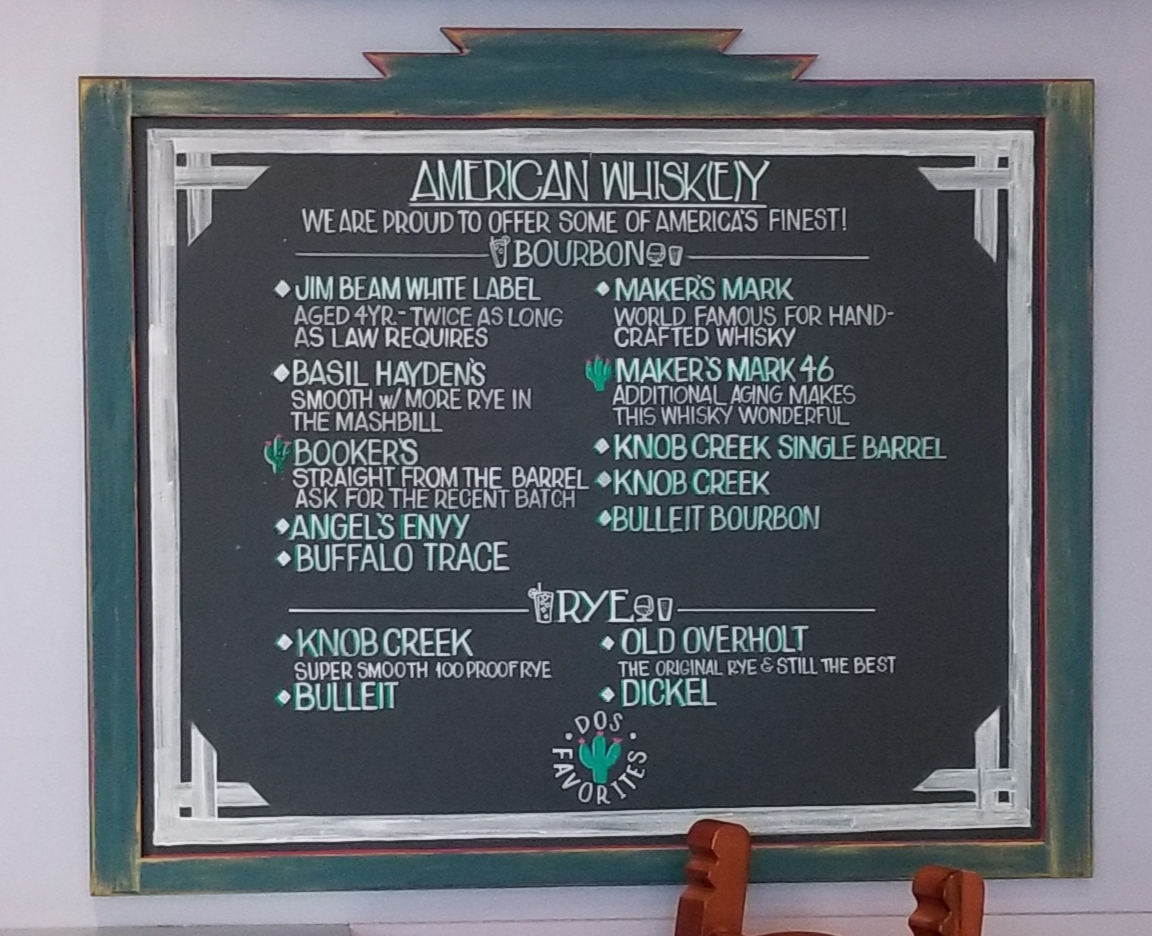 AMERICAN WHISK(E)Y
WE ARE PROUD TO OFFER SOME OF AMERICA'S FINEST!
BOURBON
JIM BEAM WHITE LABEL
AGED 4YR. - TWICE AS LONG
AS LAW REQUIRES
BASIL HAYDEN'S
SMOOTH w/ MORE RYE IN
THE MASHBILL
BOOKER'S
STRAIGHT FROM THE BARREL
ASK FOR THE RECENT BATCH
ANGEL'S ENVY
BUFFALO TRACE
MAKER'S MARK
WORLD FAMOUS FOR HAND-
CRAFTED WHISKY
MAKER'S MARK 46
ADDITIONAL AGING MAKES
THIS WHISKY WONDERFUL
KNOB CREEK SINGLE BARREL
KNOB CREEK
BULLEIT BOURBON
RYE
KNOB CREEK
SUPER SMOOTH 100 PROOF RYE
BULLEIT
OLD OVERHOLT
THE ORIGINAL RYE & STILL THE BEST
DICKEL
DOS
FAVORITES